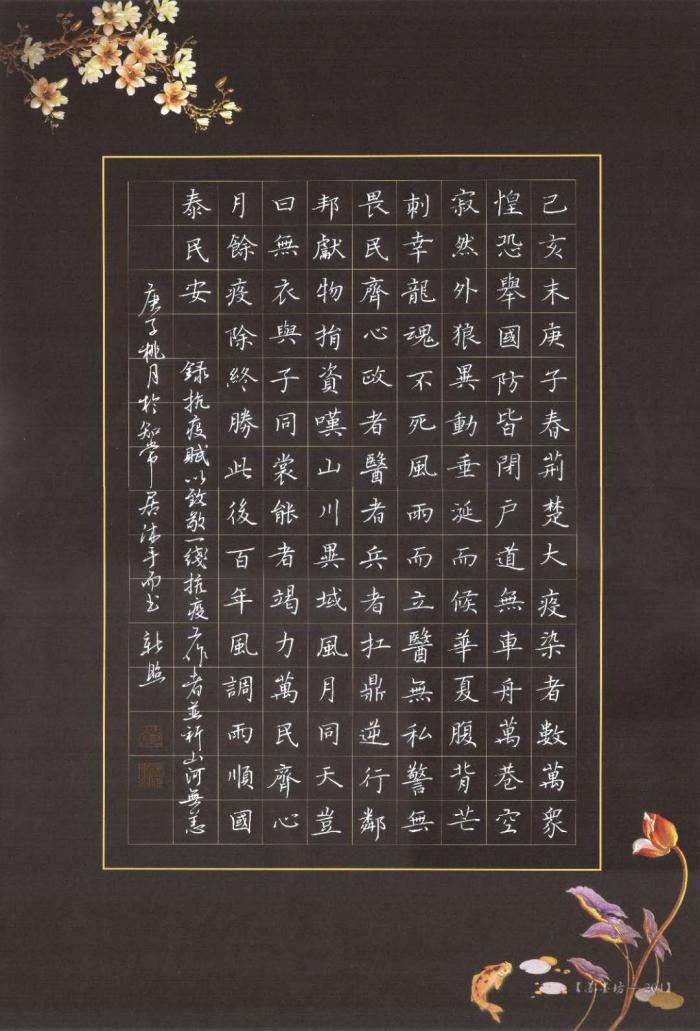 己亥末庚子春荊楚大疫染者數萬眾
惶恐舉國防皆閉戶道無車舟萬巷空
寂然外狼異動垂涎而候華夏腹背芒
刺幸龍魂不死風雨而立醫無私警無
畏民齊心政者醫者兵者扛鼎逆行鄰
邦獻物捐資嘆山川異域風月同天豈
曰無衣與子同裳能者竭力萬民齊心
月餘疫除終勝此後百年風調雨順國
泰民安
録抗疫賦以致敬一綫抗疫工作者並祈山河無恙
庚子桃月於知常居沐手而書